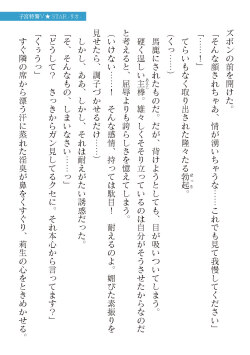 ズボンの前を開けた。
「そんな顔されちゃあ、情が湧いちゃうな……これでも見て我慢してください」
「……！」
てらいもなく取り出された隆々たる勃起。
(くっ……)
馬鹿にされたものだ。だが、背けようとしても、目が吸いついてしまう。
硬く逞しい主棒。雄々しくそそり立っているのは自分がそうさせたからなのだ
と考えると、屈辱よりも誇らしさを憶えてしまう。
(いけない……！　そんな感情、持っては駄目！　耐えるのよ。媚びた素振りを
見せたら、調子づかせるだけ……)
しかし、ああ、しかし、それは耐えがたい誘惑だった。
「そ、そんなもの、しまいなさい……っ」
「どうして？　さっきからガン見してるクセに。それ本心から言ってます？」
「くぅうっ」
すぐ隣の席から漂う汗に蒸れた淫臭が鼻をくすぐり、莉生の心をときめかせる。